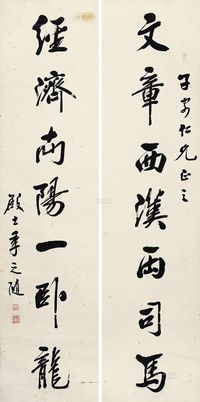 文章西漢兩司馬
子安仁兄正之
經濟南陽一卧龍
殿士季之隨